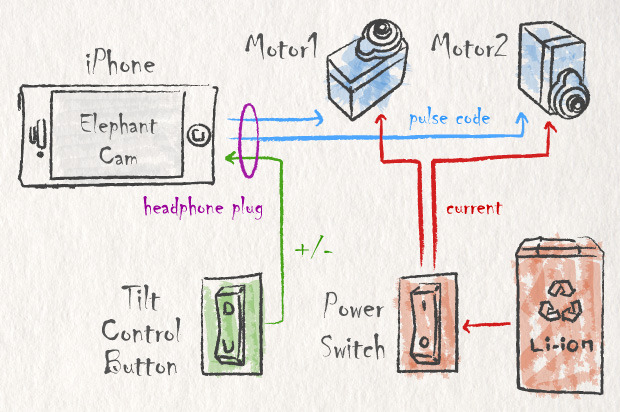 iPhone
Motor1
Motor2
Elephant
Cam
pulse code
headphone plug
current
+/-
Tilt
Control
Button
D
U
Power
Switch
I
O
Li-ion